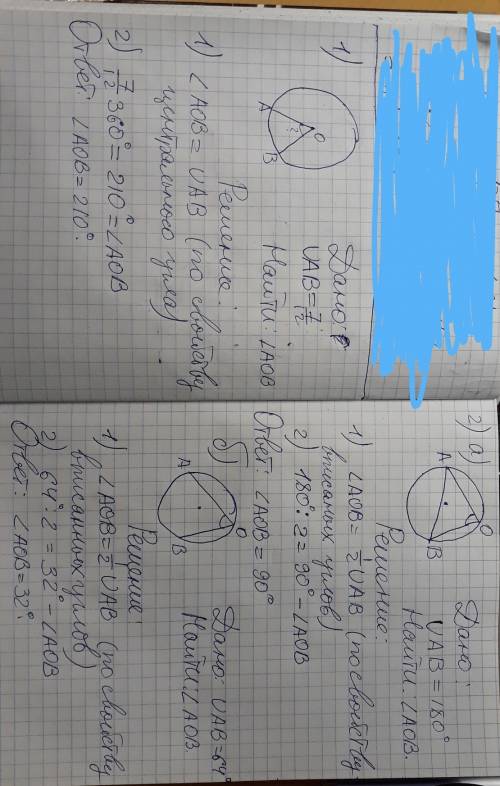 1)
O
?
A
B
Дано:
∪AB = 7/12
Найти: ∠AOB
Решение:
1) ∠AOB = ∪AB (по свойству
центрального угла)
2) 7/12 360° = 210° = ∠AOB
Ответ: ∠AOB = 210°.
2) а)
O
A
B
Дано:
∪AB = 180°
Найти: ∠AOB.
Решение:
1) ∠AOB = 1/2 ∪AB (по свойству
вписаных углов)
2) 180° : 2 = 90° - ∠AOB
Ответ: ∠AOB = 90°
б)
O
A
B
Дано: ∪AB = 64°
Найти: ∠AOB.
Решение:
1) ∠AOB = 1/2 ∪AB (по свойству
вписанных углов)
2) 64° : 2 = 32° - ∠AOB
Ответ: ∠AOB = 32°.